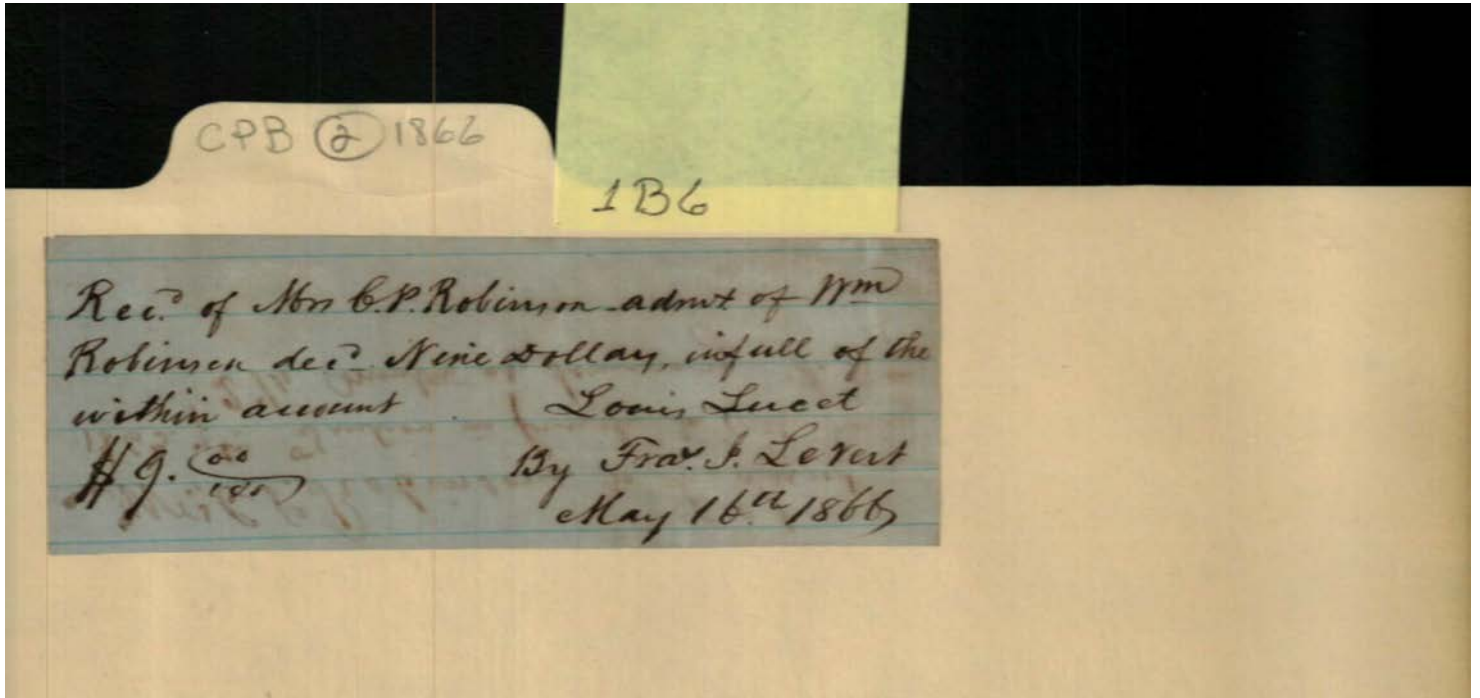 CPB 2 1866
1B6
Rec.d of Mrs C. P. Robinson admx of Wm
Robinson dec.d Nine Dollars, in full of the
within account Louis Lucet
$9. 00/100 By Fra.s J. Levert
May 16.th 1866